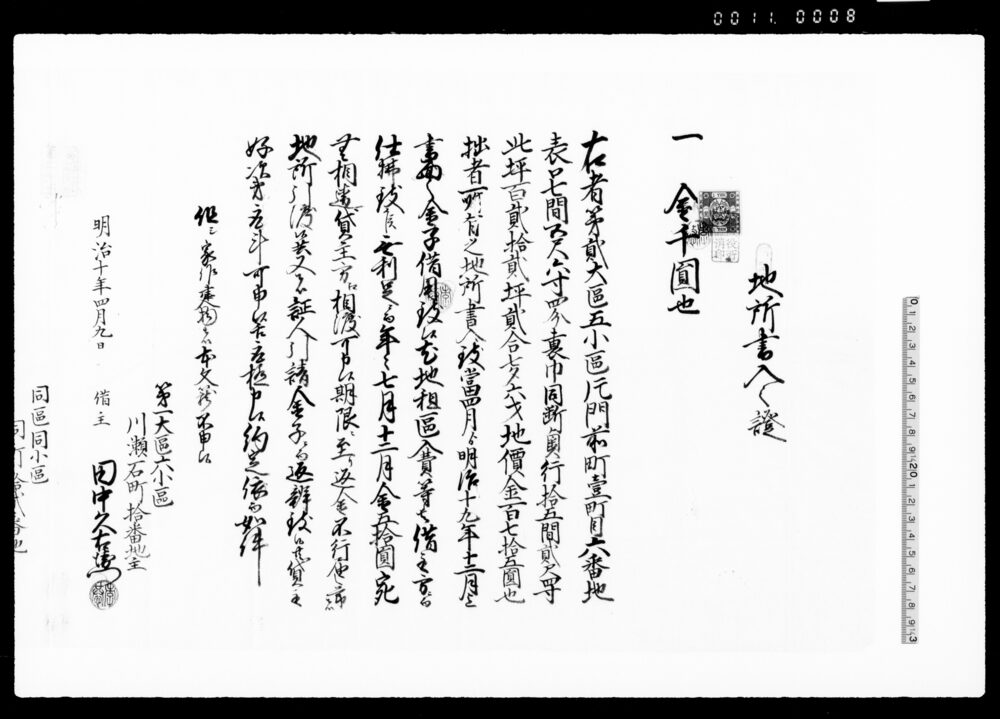 0011.0008
地所書入之證
一 金千圓也
右者第貳大區五小區 門前町壹町目六番地
表口七間五尺六寸四分裏巾同断奥行拾五間貳尺四寸
此坪百貳拾貳坪貳合七夕六才地價金百七拾五圓也
拙者所有之地所書入致當四月ゟ明治十九年十二月迄
書面之金子借用致候尤地租區費等者借主方ニ而
仕拂致 無利足ニ而年々七月十二月金五拾圓宛
無相違貸主方江相渡可申候期限ニ至り返金不行届節
地所引渡候共又者証人引請金子ニ而返辨致候共貸主
好次第 可申筈 約定依而如件
但シ家作建物者 不申候
明治十年四月九日
借主
第一大區六小區
川瀬石町拾番地主
田中久右衛門
同區同小區